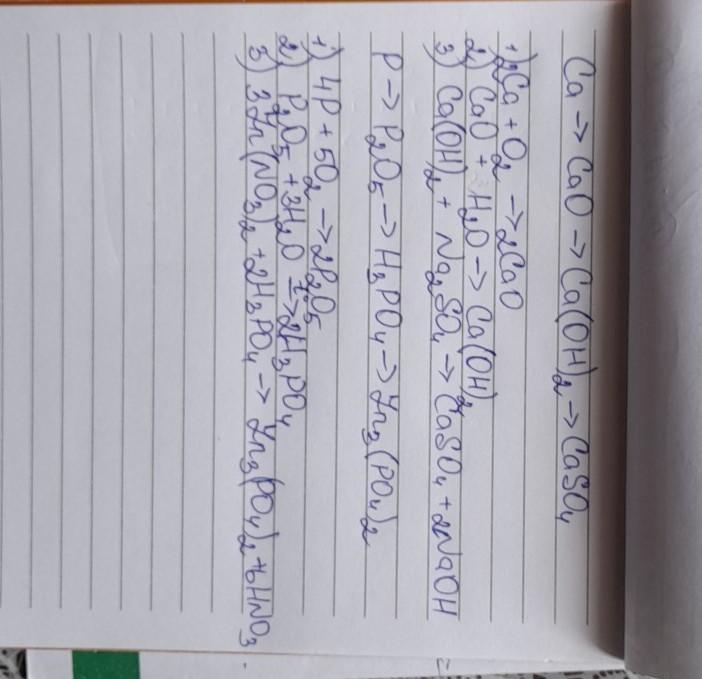 Ca → CaO → Ca(OH)₂ → CaSO₄
1) 2Ca + O₂ → 2CaO
2) CaO + H₂O → Ca(OH)₂
3) Ca(OH)₂ + Na₂SO₄ → CaSO₄ + 2NaOH
P → P₂O₅ → H₃PO₄ → Zn₃(PO₄)₂
1) 4P + 5O₂ → 2P₂O₅
2) P₂O₅ + 3H₂O t→ 2H₃PO₄
3) 3Zn(NO₃)₂ + 2H₃PO₄ → Zn₃(PO₄)₂ + 6HNO₃